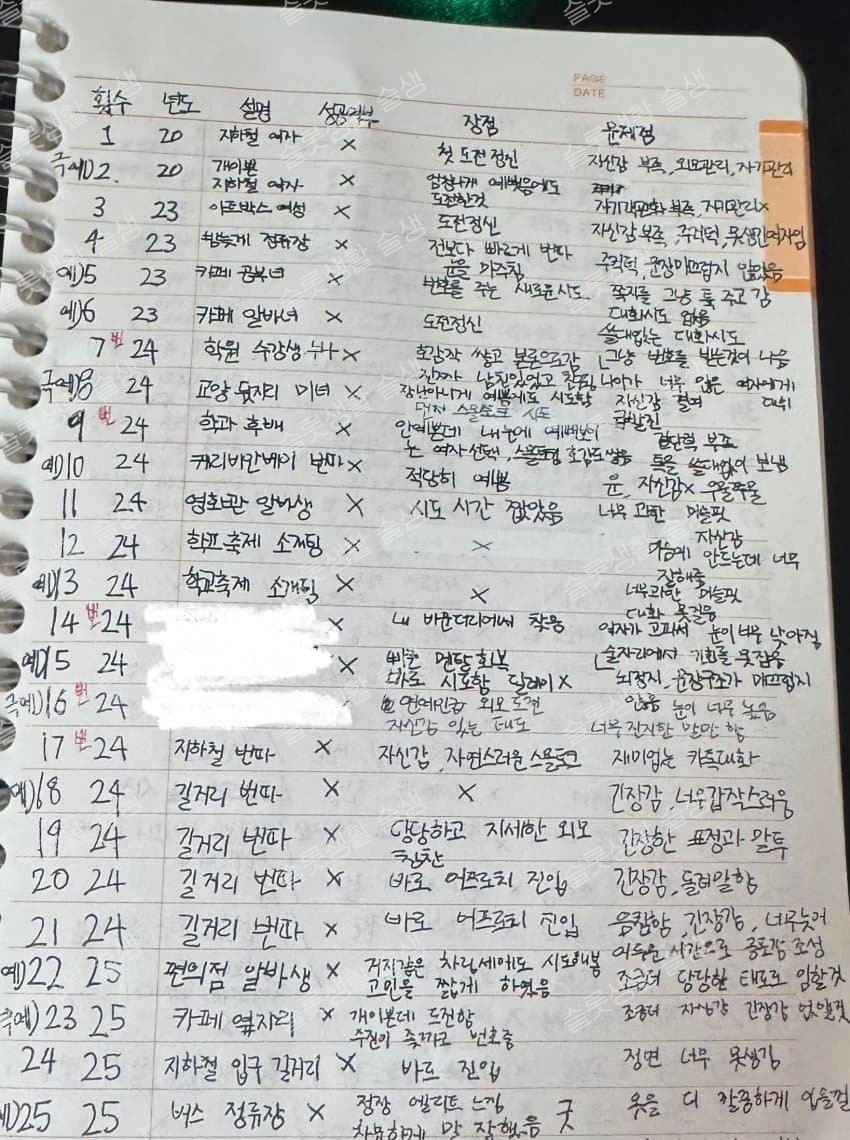 PAGE
DATE
횟수 년도 설명 성공여부 장점 문제점
1 20 지하철 여자 × 첫 도전정신 자신감 부족, 외모관리, 자기관리
극예)2. 20 개이쁜 지하철 여자 × 엄청나게 예뻤음에도 도전한것
3 23 아트박스 여성 × 도전정신 부족, 자기관리×
4 23 버스 정류장 × 전보다 빠르게 번따 자신감 부족, 못생긴
예)5 23 카페 공부녀 × 번호를 주는 새로운시도 쪽지를 그냥 툭 주고 감
예)6 23 카페 알바녀 × 도전정신 대화시도 없음
7 번 24 학원 수강생 누나 × 호감작 쌓고 본론으로감 쓸데없는 대화시도
그냥 번호를 받는것이 나음
극예)8 24 교양 옆자리 미녀 × 장난아니게 예쁨에도 시도함 너무 많은 여자에게
자신감 결여
9 번 24 학과 후배 × 먼저 스몰토크 시도 급발진
안예쁜데 내 눈에 예뻐보이는 여자 선택, 결단력 부족
예)10 24 캐리비안베이 번따 × 적당히 예쁨 톡을 쓸데없이 보냄
11 24 영화관 알바생 × 시도 시간 짧았음 너무 과한 머슬핏
12 24 학교축제 소개팅 × × 자신감
맘에 안드는데 너무 잘해줌
예)13 24 학교축제 소개팅 × × 너무과한 머슬핏
대화 못걸음
14 번 24 × 내 바운더리에서 찾음 여자가 고파서 눈이 너무 낮아짐
예)15 24 × 빠른 멘탈회복 술자리에서 기회를 못잡음
바로 시도함 딜레이× 뇌정지, 문장구조가 매끄럽지 않음
극예)16 번 24 연예인급 외모 도전 눈이 너무 높음
자신감 있는 태도 너무 진지한 발언 함
17 번 24 지하철 번따 × 자신감, 자연스러운 스몰토크 재미없는 카톡대화
예)18 24 길거리 번따 × × 긴장감, 너무갑작스러움
19 24 길거리 번따 × 당당하고 자세한 외모 칭찬 긴장한 표정과 말투
20 24 길거리 번따 × 바로 어프로치 진입 긴장감, 돌려말함
21 24 길거리 번따 × 바로 어프로치 진입 음침함, 긴장감, 너무늦어
어두운 시간으로 공포감 조성
예)22 25 편의점 알바생 × 거지같은 차림새에도 시도해봄 조금더 당당한 태도로 임할것
고민을 짧게 하였음
극예)23 25 카페 옆자리 × 개이쁜데 도전함 조금더 자신감 긴장감 없앨것
주전이 좆까고 번호줌
24 25 지하철 입구 길거리 × 바로 진입 정면 너무 못생김
예)25 25 버스 정류장 × 정장 엘리트 느낌 굿 옷을 더 깔끔하게 입을걸
차분하게 말 잘했음
슬롯생활 슬생